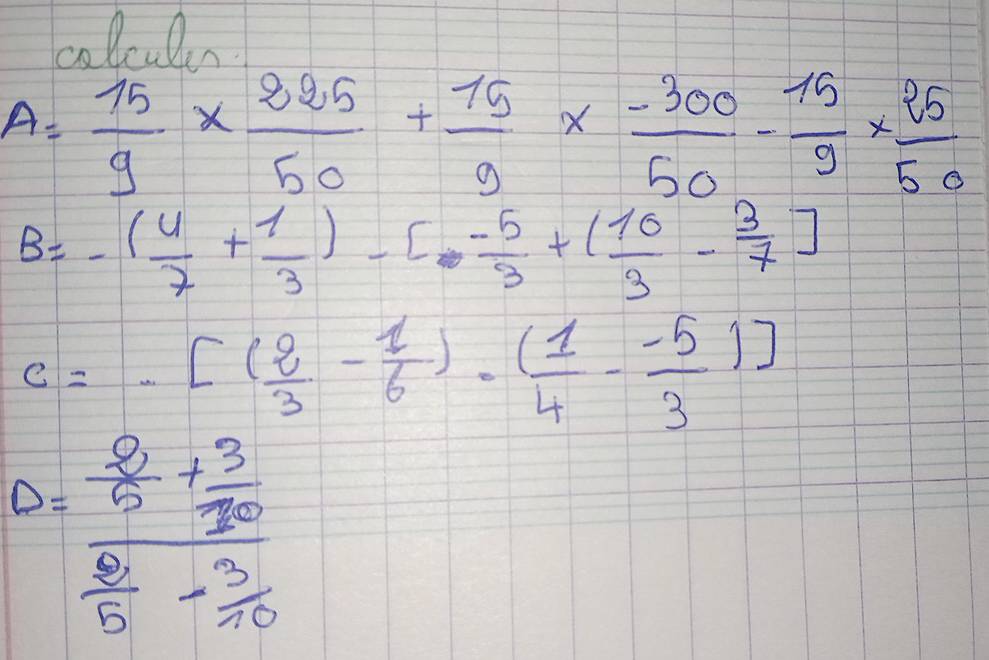 calculer.
A = 15/9 × 225/50 + 15/9 × -300/50 - 15/9 × 25/50
B = - (4/7 + 1/3) - [ -5/3 + (10/3 - 3/7 ]
C = - [ (2/3 - 1/6) - (1/4 - -5/3 ) ]
D = 2/5 + 3/10
2/5 - 3/10